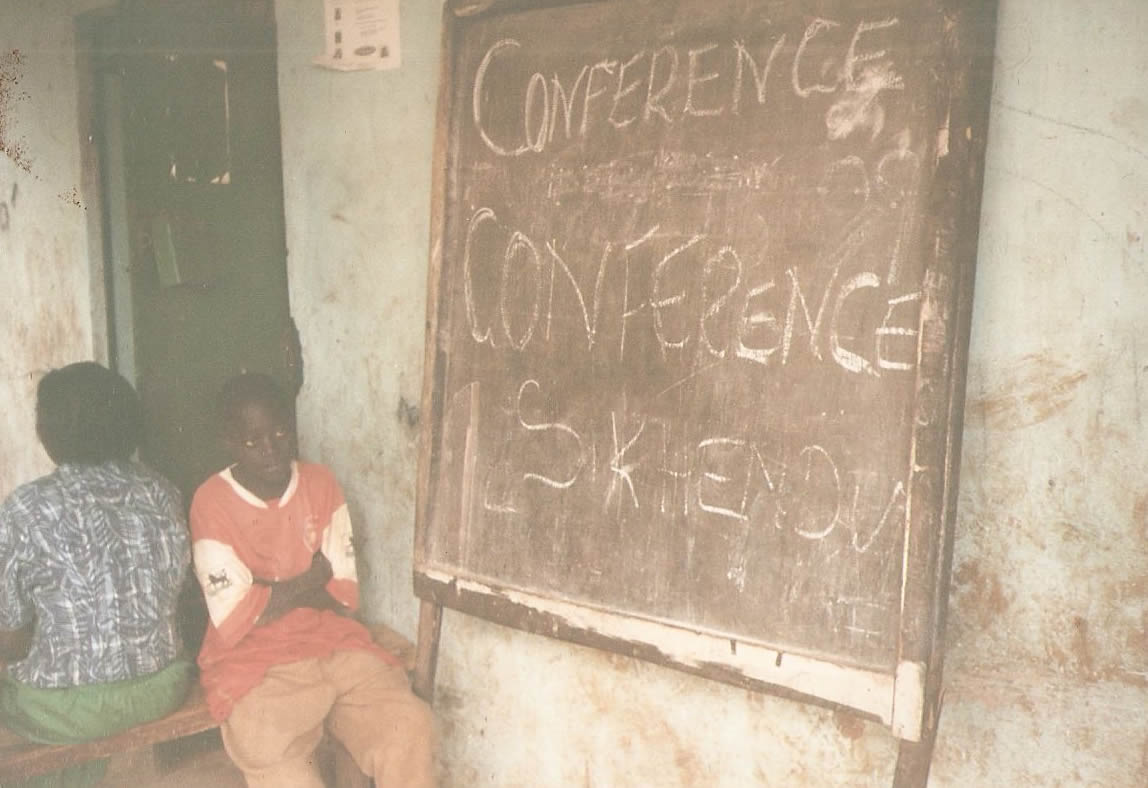 CONFERENCE
CONFERENCE
SIKHENDU